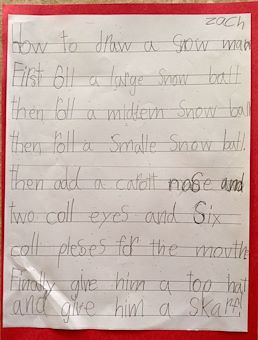 zach
How to draw a snow man
First Roll a large snow ball
then Roll a midiem snow ball
then roll a smalle snow ball.
then add a carott nose and
two coll eyes and Six
coll pieses for the mouth
Finally give him a top hat
and give him a skarf!